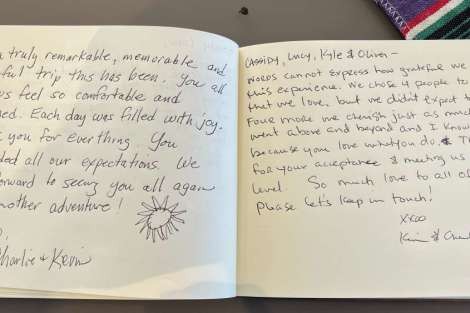 truly remarkable, memorable and
ful trip this has been. You all
us feel so comfortable and
ed. Each day was filled with joy.
you for everthing. You
ded all our expectations. We
forward to seeing you all again
nother adventure!
Charlie & Kevin
CASSIDY, Lucy, Kyle & Oliver -
Words cannot express how grateful we
this experience. We chose 4 people to
that we love, but we didn't expect t
Four more we cherish just as much
went above and beyond and I know
because you love what you do. & T
for your acceptance & meeting us
level. So much love to all of
Please let's keep in touch!
XXOO
&